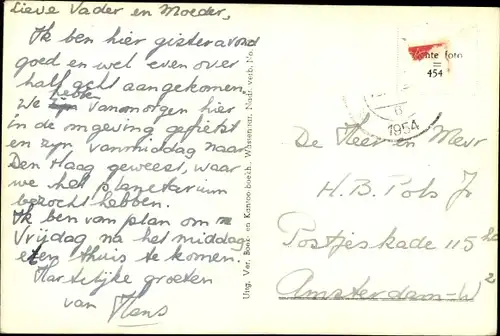 Lieve Vader en Moeder,
Ik ben hier gisteravond
goed en wel even over
half acht aangekomen.
We hebben vanmorgen hier
in de omgeving gefietst
en zijn vanmiddag naar
Den Haag geweest, waar
we het planetarium
bezocht hebben.
Ik ben van plan om
Vrijdag na het middag
eten thuis te komen.
Hartelijke groeten
van Hans
Uitg. Ver. Boek- en Kantoorboekh., Wassenaar. Nadr. verb. No.
foto
=
454
1954
De Heer en Mevr
H.B. Pols Jr
Postjeskade 115
Amsterdam-W
2